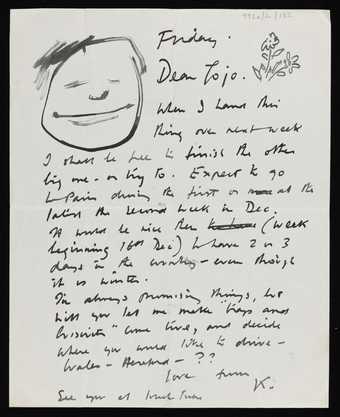 Friday.
Dear Jojo.
When I hand this
thing over next week
I shall be free to finish the other
big one - or try to. Expect to go
to Paris during the first or at the
latest the second week in Dec.
It would be nice then (week
beginning 16th Dec) to have 2 or 3
days in the country - even though
it is winter.
I'm always promising things, but
will you let me make "days and
" come true, and decide
where you would like to drive -
Wales - Hereford - ??
love from
K.
See you at